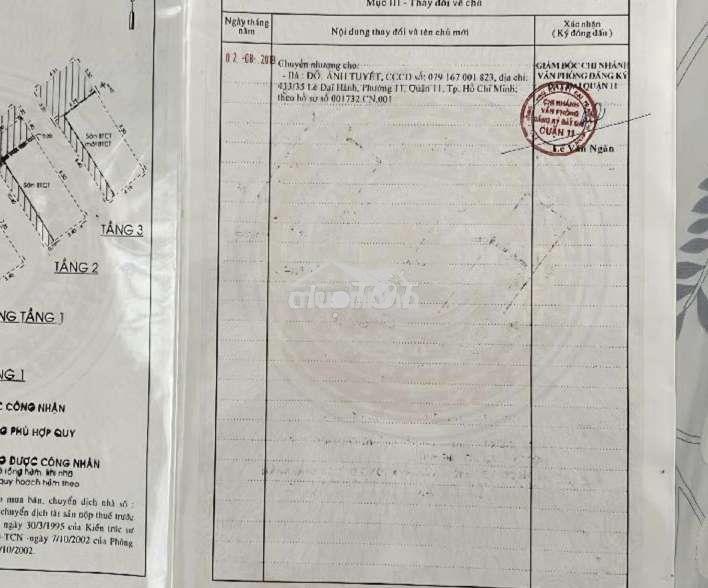 Mục III - Thay đổi về chủ
Ngày tháng năm
Nội dung thay đổi và tên chủ mới
Xác nhận
( Ký đóng dấu)
02 -08- 2019
Chuyển nhượng cho:
- Bà : ĐỖ ÁNH TUYẾT, CCCD số: 079 167 001 823, địa chỉ:
433/35 Lê Đại Hành, Phường 11, Quận 11, Tp. Hồ Chí Minh;
theo hồ sơ số 001732.CN.001
GIÁM ĐỐC CHI NHÁNH
VĂN PHÒNG ĐĂNG KÝ
ĐẤT ĐAI QUẬN 11
CHI NHÁNH
VĂN PHÒNG
ĐĂNG KÝ ĐẤT ĐAI
QUẬN 11
Lê Văn Ngân
Sân BTCT
mái BTCT
Sân BTCT
TẦNG 3
TẦNG 2
NG TẦNG 1
NG 1
C CÔNG NHẬN
G PHÙ HỢP QUY
G ĐƯỢC CÔNG NHẬN
lộ rộng hẻm, khi nhà
quy hoạch hẻm theo
mua bán, chuyển dịch nhà số :
chuyển dịch tài sản nộp thuế trước
ngày 30/3/1995 của Kiến trúc sư
-TCN -ngày 7/10/2002 của Phòng
/10/2002.